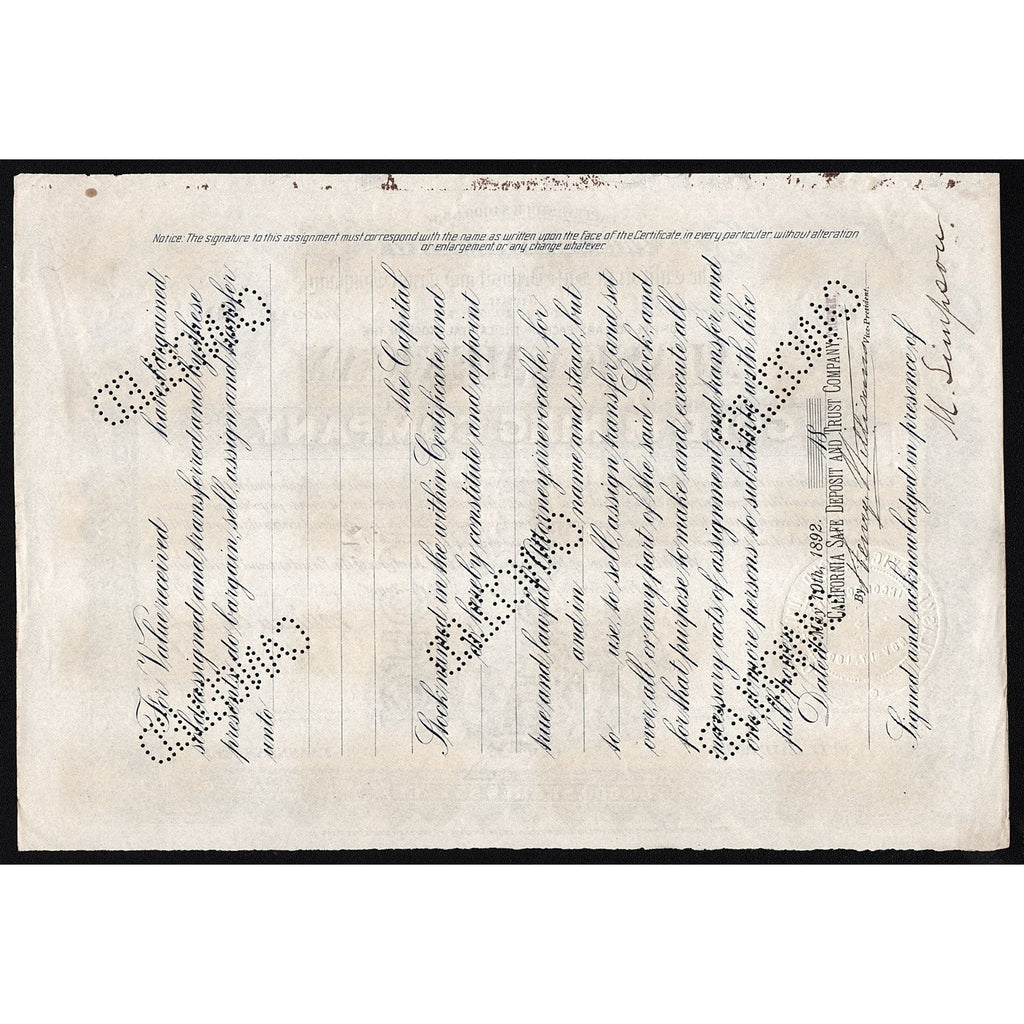 Notice: The signature to this assignment must correspond with the name as written upon the face of the Certificate, in every particular, without alteration
or enlargement, or any change whatever.
For Value received have assigned,
assigned and transferred and by these
presents do bargain, sell, assign and transfer
unto
the Capital
Stock named in the within Certificate, and
do hereby constitute and appoint
true and lawful Attorney, irrevocable, for
and in name and stead, but
to use, to sell, assign, transfer, and set
over, all or any part of the said Stock, and
for that purpose to make and execute all
necessary acts of assignment and transfer, and
one or more persons to substitute with like
full power.
Dated May 10th, 1892. 18
CALIFORNIA SAFE DEPOSIT AND TRUST COMPANY,
By Henry Williams
Vice-President.
Signed and acknowledged in presence of
M. Simpson.
CANCELLED
CANCELLED
CANCELLED
CANCELLED
CANCELLED